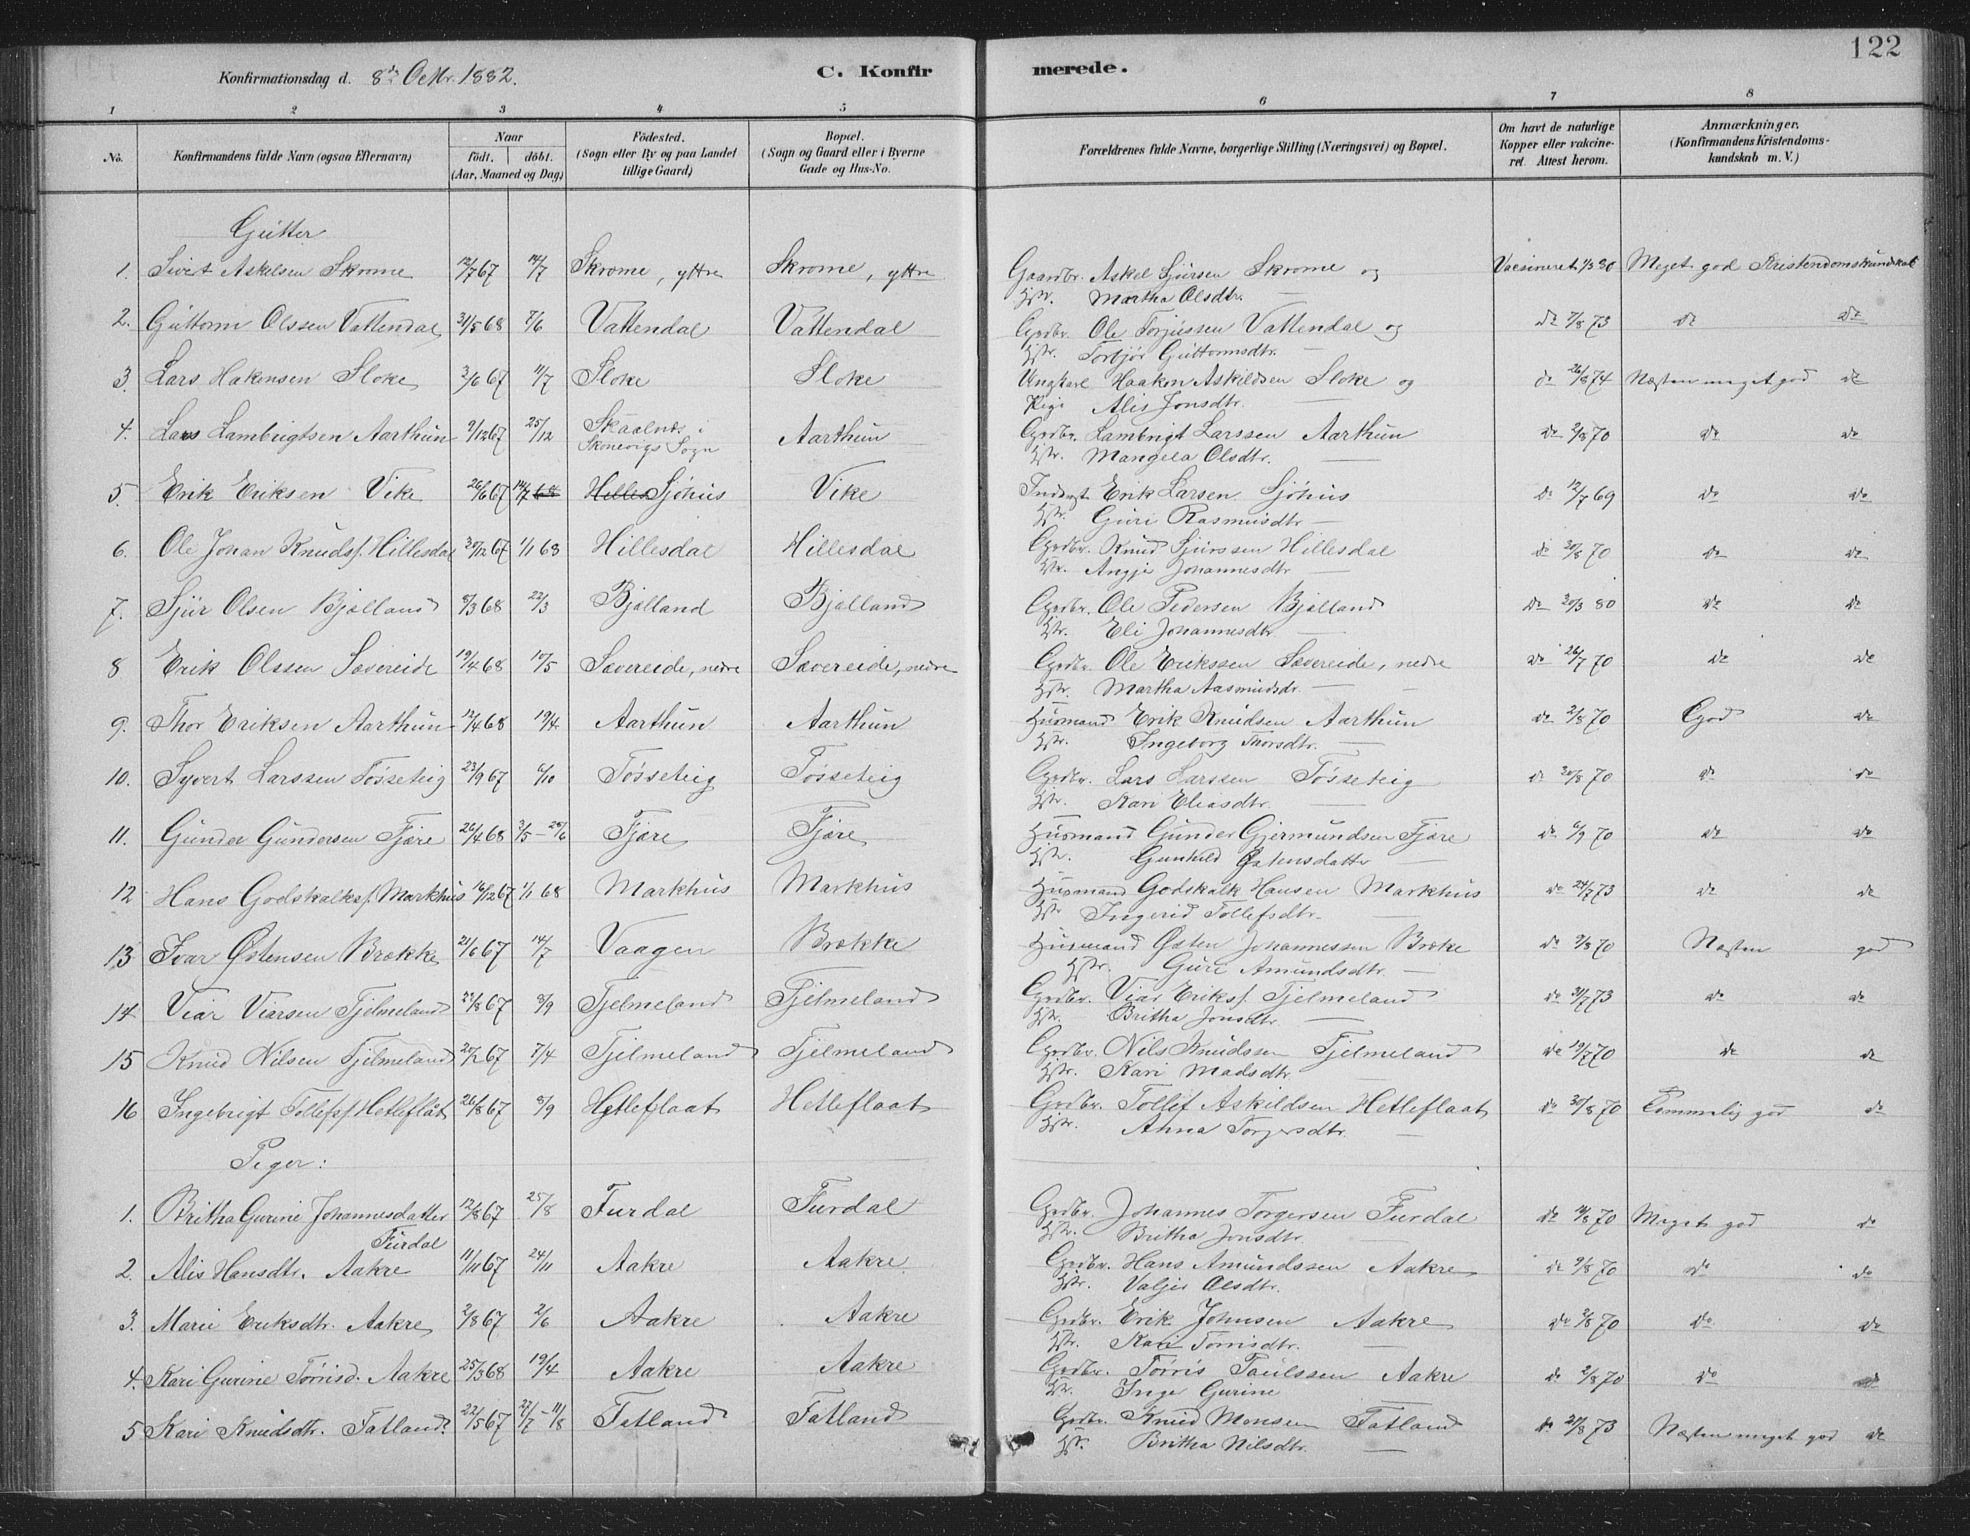 122
Konfirmationsdag d. 8de Octbr. 1882.
C. Konfirmerede.
1 2 3 4 5 6 7 8
No. Konfirmandens fulde Navn (ogsaa Efternavn) Naar født. døbt. (Aar, Maaned og Dag) Fødested. (Sogn eller By og paa Landet tillige Gaard) Bopæl. (Sogn og Gaard eller i Byerne Gade og Hus-No. Forældrenes fulde Navne, borgerlige Stilling (Næringsvei) og Bopæl. Om havt de naturlige Kopper eller vakcineret. Attest herom. Anmærkninger. (Konfirmandens Kristendomskundskab m. V.)
Gutter
1. Sivert Askelsen Skrome 12/7 67 14/7 Skrome, yttre Skrome, yttre Gaardbr. Askel Sjursen Skrome og Vacsineret 1/3 80 Meget god Kristendomskundskab
Hstr. Martha Olsdtr. —
2. Guttorm Olssen Vattendal 31/5 68 7/6 Vattendal Vattendal Grdbr. Ole Torjussen Vattendal og do 7/8 73 do do
Hstr. Torbjør Guttormsdtr. —
3. Lars Hakensen Sloke 3/6 67 11/7 Sloke Sloke Ungkarl Haakon Askildsen Sloke og do 26/8 74 Næsten meget god do
Pige Alis Jonsdtr. —
4. Lars Lambrigtsen Aarthun 9/12 67 25/12 Skaalnes i Skonevigs Sogn Aarthun Grdbr. Lambrigt Larssen Aarthun do 2/8 70 do do
Hstr. Mangela Olsdtr. —
5. Erik Eriksen Vike 26/6 67 14/7 68 Hilles Sjøhus Vike Inderst Erik Larsen Sjøhus do 12/7 69 do do
Hstr. Guri Rasmusdtr —
6. Ole Johan Knudsf. Hillesdal 30/12 67 1/1 68 Hillesdal Hillesdal Grdbr. Knud Sjurssen Hillesdal do 30/8 70 do do
Hstr. Angje Johannesdtr —
7. Sjur Olsen Bjælland 8/3 68 22/3 Bjælland Bjælland Grdbr. Ole Pedersen Bjælland do 30/3 80 do do
Hstr. Eli Johannesdtr. —
8 Erik Olssen Sævereide 19/4 68 10/5 Sævereide, nedre Sævereide, nedre Grdbr. Ole Erikssen Sævereide, nedre do 26/7 70 do do
Hstr. Martha Aasmundsdr. —
9. Thor Eriksen Aarthun 12/4 68 19/4. Aarthun Aarthun Husmand Erik Knudsen Aarthun do 2/8 70 God do
Hstr. Ingeborg Thorsdtr. —
10. Syvert Larssen Tøsseteig 23/9 67 6/10 Tøsseteig Tøsseteig Grdbr. Lars Larssen Tøsseteig do 30/8 70 do do
Hstr. Kari Eliasdtr. —
11. Gunder Gundersen Fjære 26/4 68 3/5 – 28/6 Fjære Fjære Husmand Gunder Gjermundsen Fjære do 6/9 70 do do
Hstr. Gunhild Østensdatter —
12 Hans Godskalksf. Markhus 16/12 67 1/1 68 Markhus Markhus Husmand Godskalk Hansen Markhus do 24/7 73 do do
Hstr Ingerid Tollefsdtr. —
13 Ivar Østensen Brække 21/6 67 14/7 Vaagen Brække Husmand Østen Johannessen Bræke do 9/8 70 Næsten god
Hstr. Guri Amundsdtr. —
14 Viar Viarsen Tjelmeland 22/8 67 8/9 Tjelmeland Tjelmeland Grdbr. Viar Eriksf. Tjelmeland do 31/7 73 do do
Hstr. Britha Jonsdtr. —
15 Knud Nilsen Tjelmeland 20/2 67 7/4 Tjelmeland Tjelmeland Grdbr. Nils Knudssen Tjelmeland do 19/7 70 do do
Hstr. Kari Madsdtr. —
16 Ingebrigt Tollefsf. Hetleflåt 26/8 67 8/9 Hetleflaat Hetleflaat Grdbr. Tollef Askildsen Hetleflaat do 30/8 70 Temmelig god do
Hstr. Anna Torgersdtr. —
Piger:
1. Britha Gurine Johannesdatter Furdal 12/8 67 25/8 Furdal Furdal Grdbr. Johannes Torgersen Furdal do 11/8 70 Meget god do
Hstr. Britha Jonsdtr. —
2. Alis Hansdtr. Aakre 11/11 67 24/11 Aakre Aakre Grdbr. Hans Amundssen Aakre do 9/8 70 do do
Hstr. Valjer Olsdtr.
3. Marie Eriksdtr. Aakre 2/8 67 2/6 Aakre Aakre Grdbr. Erik Johnsen Aakre do 2/8 70 do do
Hstr. Kari Torrisdtr. —
4. Kari Gurine Tørrisd. Aakre 25/3 68 19/4 Aakre Aakre Grdbr. Tørris Paulssen Aakre do 2/8 70 do do
Hstr. Inge Gurine
5 Kari Knudsdtr. Fatland. 22/5 67 22/7 – 11/8 Fatland Fatland Grdbr. Knud Monsen Fatland do 20/8 73 Næsten meget god do
Hstr. Britha Nilsdtr. —